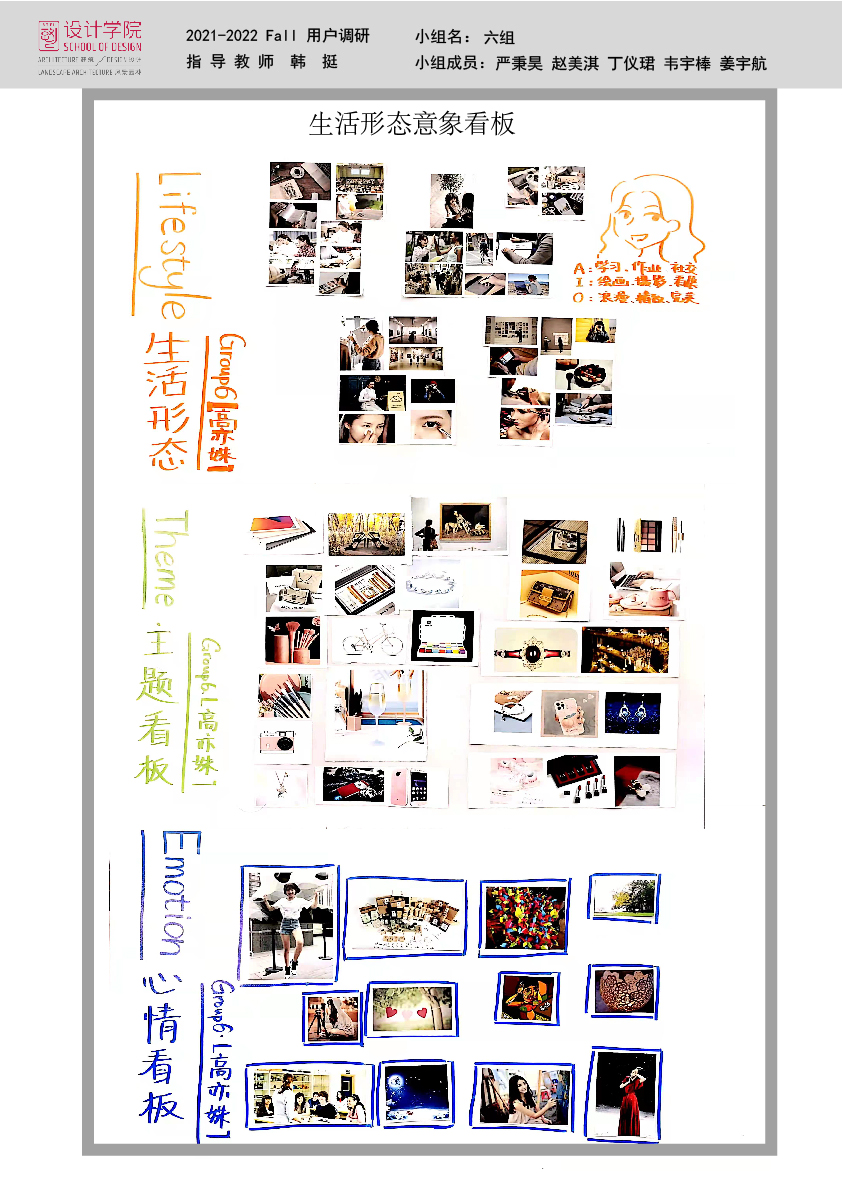 设计学院
SCHOOL OF DESIGN
ARCHITECTURE 建筑 / DESIGN 设计
LANDSCAPE ARCHITECTURE 风景园林
2021-2022 Fall 用户调研
指 导 教 师 韩 挺
小组名： 六组
小组成员： 严秉昊 赵美淇 丁仪珺 韦宇棒 姜宇航
生活形态意象看板
Lifestyle
生活形态
Group6【高亦姝】
A：学习、作业、社交
I：绘画、摄影、看展
O：浪漫、精致、完美
Theme·主题看板
Group6.【高亦姝】
Emotion 心情看板
Group6.【高亦姝】